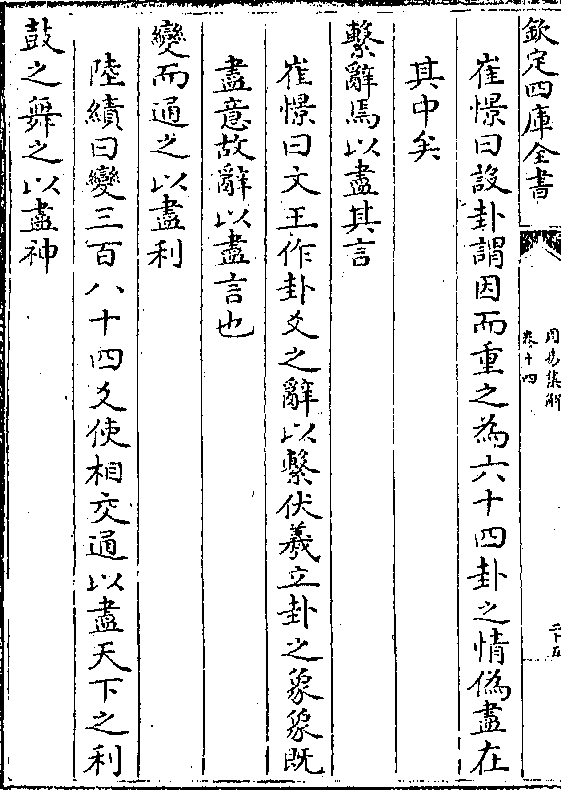 欽定四庫全書
周易集解
卷十四
崔憬曰設卦謂因而重之為六十四卦之情偽盡在
其中矣
繫辭焉以盡其言
崔憬曰文王作卦爻之辭以繫伏羲立卦之象象既
盡意故辭以盡言也
變而通之以盡利
陸績曰變三百八十四爻使相交通以盡天下之利
鼓之舞之以盡神